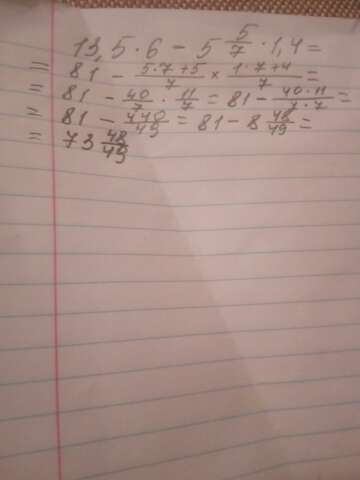 13,5·6 - 5 5/7 · 1,4 =
= 81 - 5·7+5/7 × 1·7+4/7 =
= 81 - 40/7 · 11/7 = 81 - 40·11/7·7 =
= 81 - 440/49 = 81 - 8 48/49 =
= 73 48/49